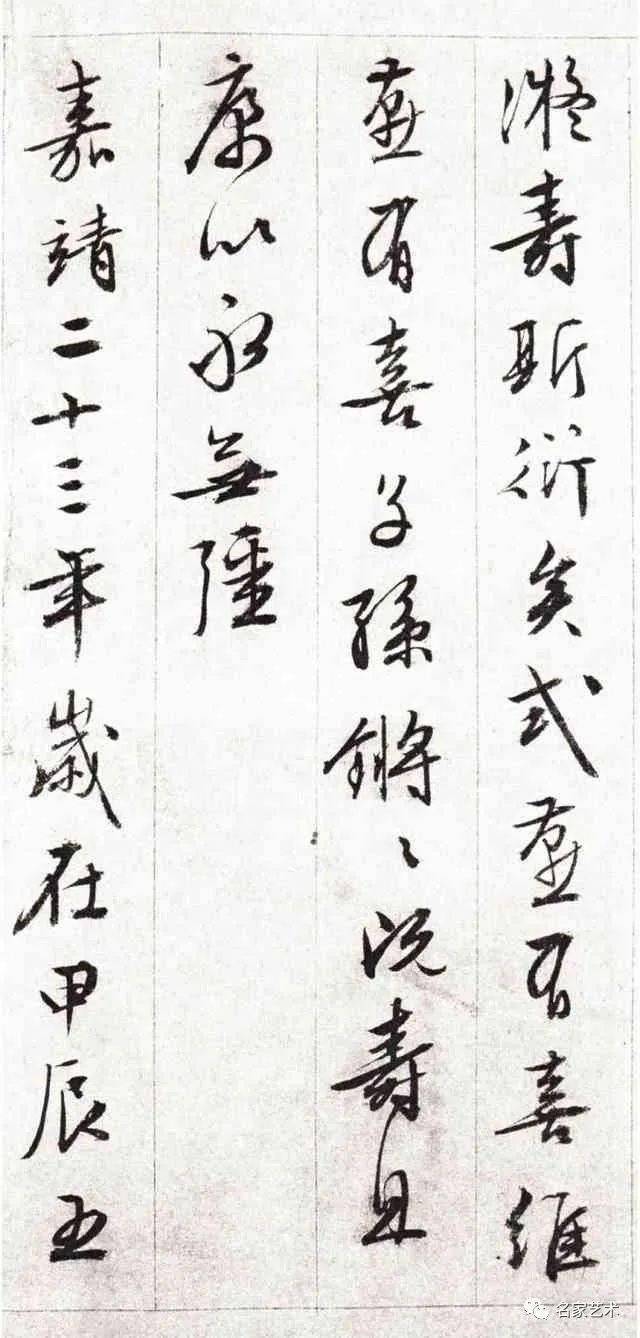 凝壽斯衍矣式燕有喜維
燕有喜子孫鏘〻既壽且
康以永無疆
嘉靖二十三年歲在甲辰五
名家艺术